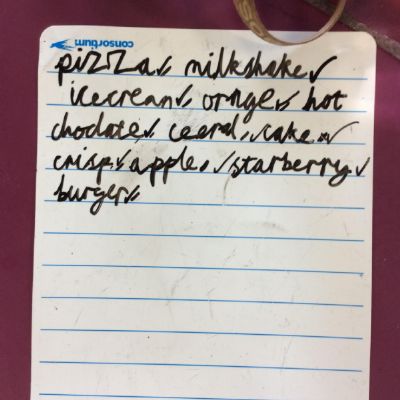 consortium
pizza, milkshake
icecream, ornge, hot
choclate, ceeral, cake
crisp, apple, starberry
burger